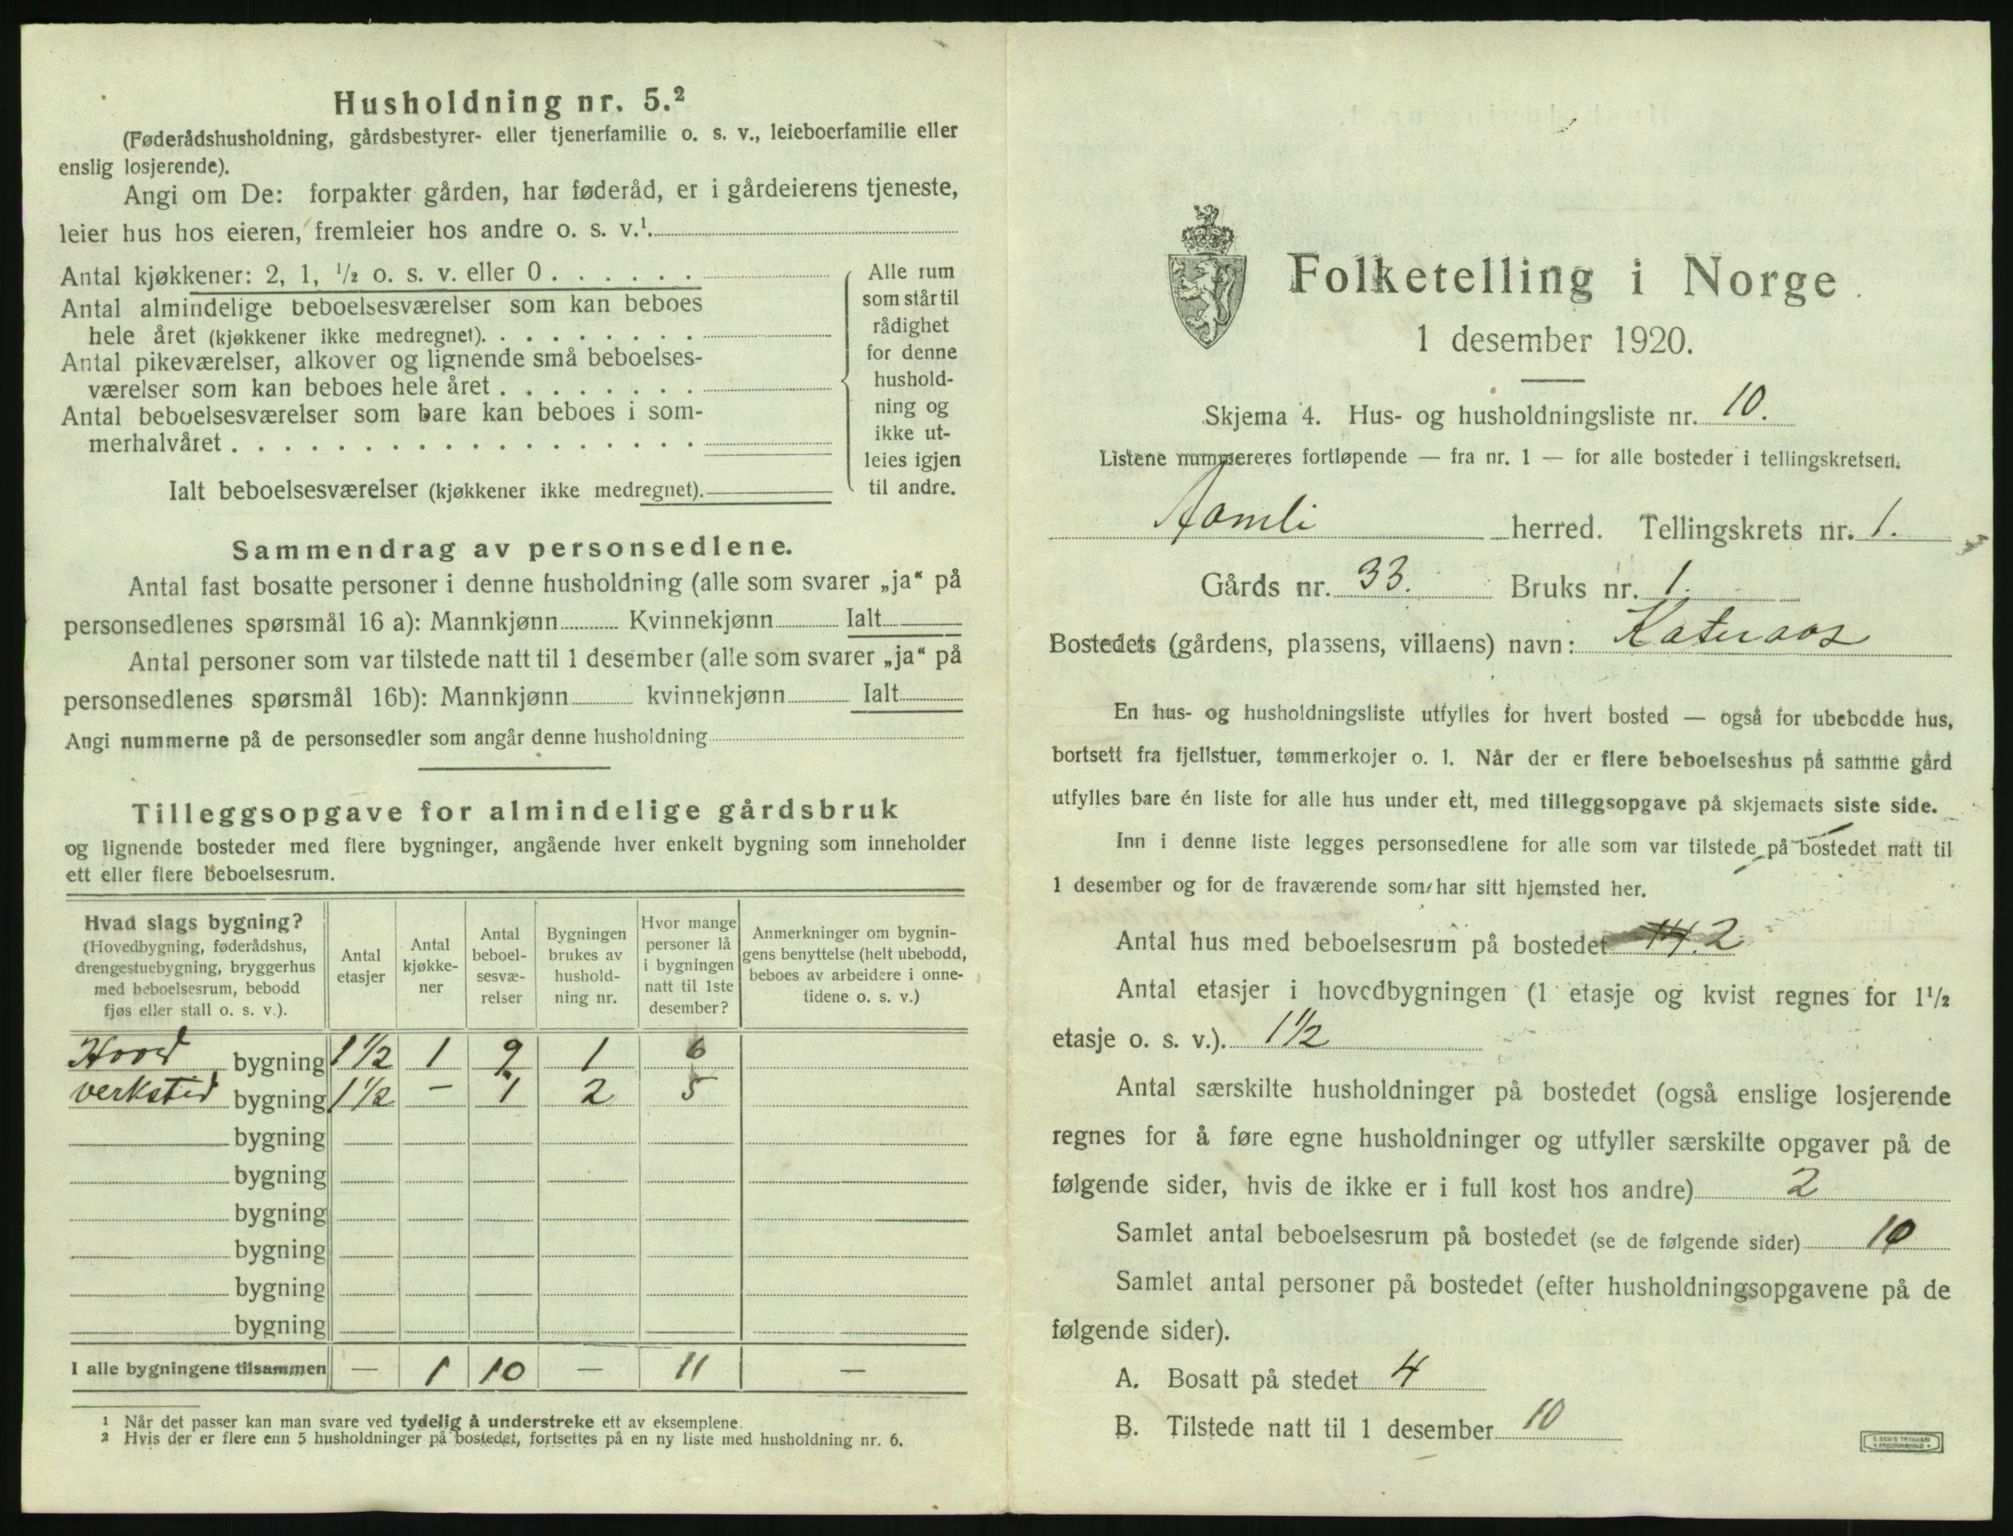 Husholdning nr. 5.²
(Føderådshusholdning, gårdsbestyrer- eller tjenerfamilie o. s. v., leieboerfamilie eller
enslig losjerende).
Angi om De: forpakter gården, har føderåd, er i gårdeierens tjeneste,
leier hus hos eieren, fremleier hos andre o. s. v.¹
Antal kjøkkener: 2, 1, ½ o. s. v. eller 0 . . . . . .
Antal almindelige beboelsesværelser som kan beboes
hele året (kjøkkener ikke medregnet). . . . . . . . .
Antal pikeværelser, alkover og lignende små beboelses-
værelser som kan beboes hele året . . . . . . . .
Antal beboelsesværelser som bare kan beboes i som-
merhalvåret . . . . . . . . . . . . . . . . . .
Ialt beboelsesværelser (kjøkkener ikke medregnet).
Alle rum
som står til
rådighet
for denne
hushold-
ning og
ikke ut-
leies igjen
til andre.
Sammendrag av personsedlene.
Antal fast bosatte personer i denne husholdning (alle som svarer „ja“ på
personsedlenes spørsmål 16 a): Mannkjønn Kvinnekjønn Ialt
Antal personer som var tilstede natt til 1 desember (alle som svarer „ja“ på
personsedlenes spørsmål 16b): Mannkjønn kvinnekjønn Ialt
Angi nummerne på de personsedler som angår denne husholdning
Tilleggsopgave for almindelige gårdsbruk
og lignende bosteder med flere bygninger, angående hver enkelt bygning som inneholder
ett eller flere beboelsesrum.
Hvad slags bygning?
(Hovedbygning, føderådshus,
drengestuebygning, bryggerhus
med beboelsesrum, bebodd
fjøs eller stall o. s. v.).
Antal
etasjer
Antal
kjøkke-
ner
Antal
beboel-
sesvæ-
relser
Bygningen
brukes av
hushold-
ning nr.
Hvor mange
personer lå
i bygningen
natt til 1ste
desember?
Anmerkninger om bygnin-
gens benyttelse (helt ubebodd,
beboes av arbeidere i onne-
tidene o. s. v.)
Hoved bygning 1 1/2 1 9 1 6
verksted bygning 1 1/2 - 1 2 5
bygning
bygning
bygning
bygning
bygning
bygning
I alle bygningene tilsammen — 1 10 — 11 —
¹ Når det passer kan man svare ved tydelig å understreke ett av eksemplene.
² Hvis der er flere enn 5 husholdninger på bostedet, fortsettes på en ny liste med husholdning nr. 6.
Folketelling i Norge
1 desember 1920.
Skjema 4. Hus- og husholdningsliste nr. 10.
Listene nummereres fortløpende — fra nr. 1 — for alle bosteder i tellingskretsen.
Aamli herred. Tellingskrets nr. 1.
Gårds nr. 33. Bruks nr. 1.
Bostedets (gårdens, plassens, villaens) navn: Kateraas
En hus- og husholdningsliste utfylles for hvert bosted — også for ubebodde hus,
bortsett fra fjellstuer, tømmerkojer o. l. Når der er flere beboelseshus på samme gård
utfylles bare én liste for alle hus under ett, med tilleggsopgave på skjemaets siste side.
Inn i denne liste legges personsedlene for alle som var tilstede på bostedet natt til
1 desember og for de fraværende som har sitt hjemsted her.
Antal hus med beboelsesrum på bostedet 2
Antal etasjer i hovedbygningen (1 etasje og kvist regnes for 1½
etasje o. s. v.). 1 1/2
Antal særskilte husholdninger på bostedet (også enslige losjerende
regnes for å føre egne husholdninger og utfyller særskilte opgaver på de
følgende sider, hvis de ikke er i full kost hos andre) 2
Samlet antal beboelsesrum på bostedet (se de følgende sider) 10
Samlet antal personer på bostedet (efter husholdningsopgavene på de
følgende sider).
A. Bosatt på stedet 4
B. Tilstede natt til 1 desember 10